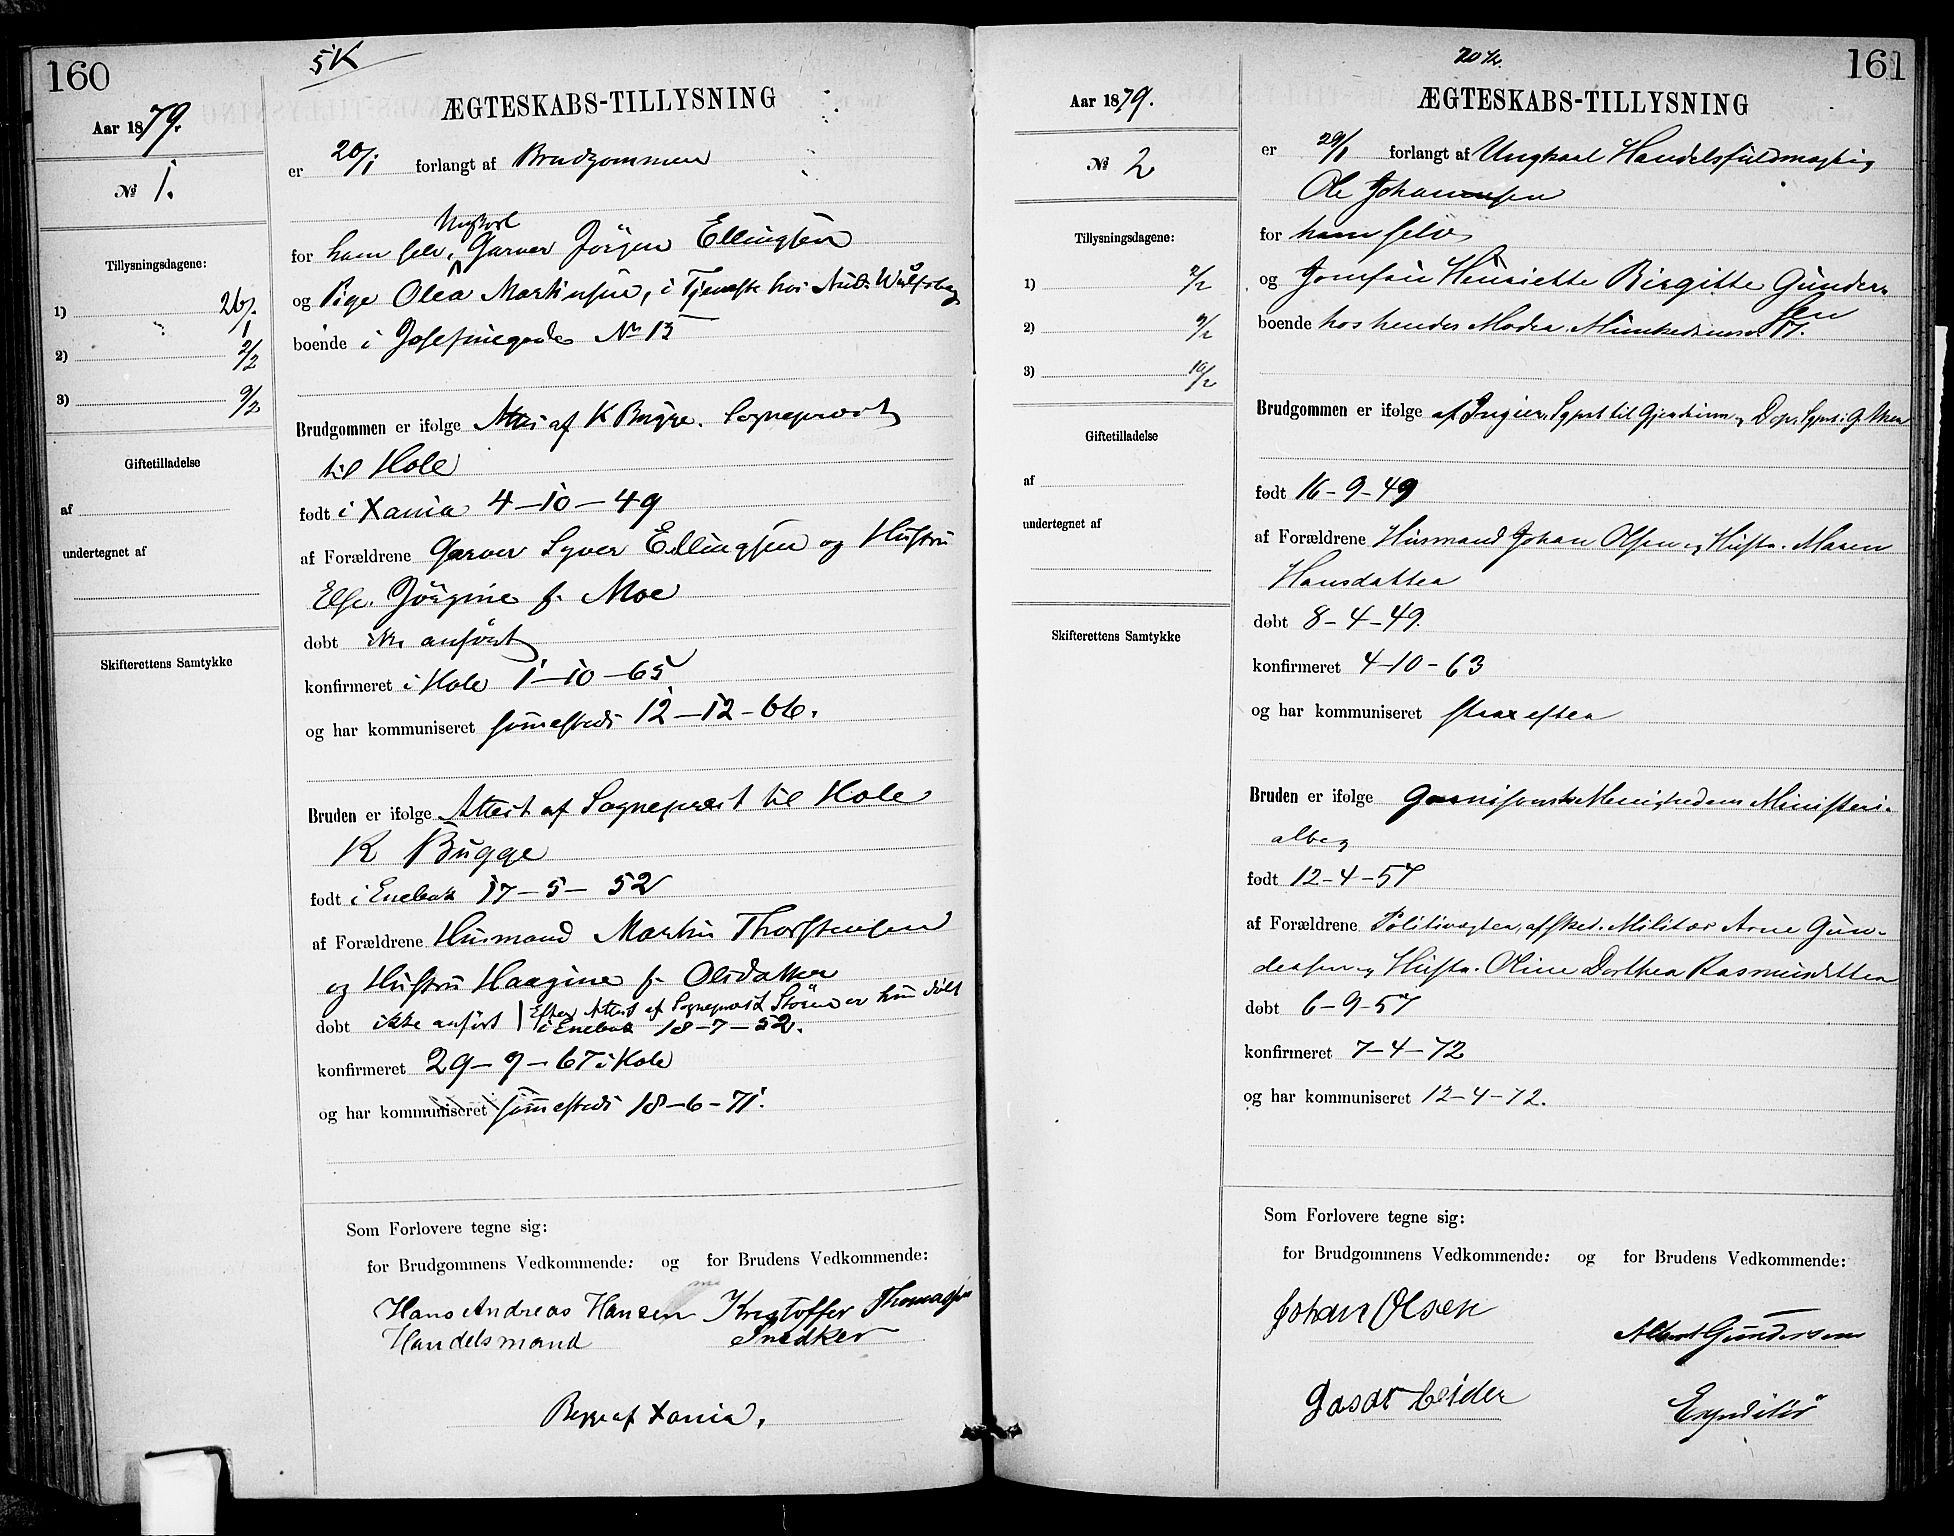 160
5K
Aar 1879.
ÆGTESKABS-TILLYSNING
№ 1.
er 20/1 forlangt af Brudgommen
Ungkarl
for ham selv, Garver Jörgen Ellingsen
og Pige Olea Martinsen, i Tjeneste hos
boende i Josefinegade No 13
Tillysningsdagene:
1) 26/1
2) 2/2
3) 9/2
Giftetilladelse
af
undertegnet af
Skifterettens Samtykke
Brudgommen er ifølge Attest af K Bugge. Sogneprest
til Hole
født i Xania 4-10-49
af Forældrene Garver Syver Ellingsen og Hustru
Else Jörgine f. Moe
døbt ikke anført
konfirmeret i Hole 1-10-65
og har kommuniseret sammesteds 12-12-66.
Bruden er ifølge Attest af Sogneprest til Hole
K Bugge
født i Enebak 17-5-52
af Forældrene Husmand Martin Thorstensen
og Hustru Haagine f. Olsdatter
døbt ikke anført | Efter Attest af Sogneprest Stören er hun döbt
i Enebak 18-7-52.
konfirmeret 29-9-67 i Hole
og har kommuniseret sammesteds 18-6-71.
Som Forlovere tegne sig:
for Brudgommens Vedkommende: og for Brudens Vedkommende:
Hans Andreas Hansen Kristoffer Thomassen
Handelsmand Snedker
Begge af Xania.
161
20 K.
Aar 1879.
ÆGTESKABS-TILLYSNING
№ 2
er 29/1 forlangt af Ungkarl Handelsfuldmægtig
Ole Johannsen
for ham selv
og Jomfru Henriette Birgitte Gunder-
sen
boende hos hendes Moder, Munkedamsv 17.
Tillysningsdagene:
1) 2/2
2) 9/2
3) 16/2
Giftetilladelse
af
undertegnet af
Skifterettens Samtykke
Brudgommen er ifølge af Ingier, Sgprst til Gjerdrum
født 16-9-49
af Forældrene Husmand Johan Olsen og Hustr. Maren
Hansdatter
døbt 8-4-49.
konfirmeret 4-10-63
og har kommuniseret strax efter
Bruden er ifølge Garnisonsmenighedens Ministeri-
albog
født 12-4-57
af Forældrene Politivagter, afsked. Militær Arne Gun-
dersen og Hustr. Oline Dorthea Rasmusdatter
døbt 6-9-57
konfirmeret 7-4-72
og har kommuniseret 12-4-72.
Som Forlovere tegne sig:
for Brudgommens Vedkommende: og for Brudens Vedkommende:
Johan Olsen
Albert Gundersen
Expeditör